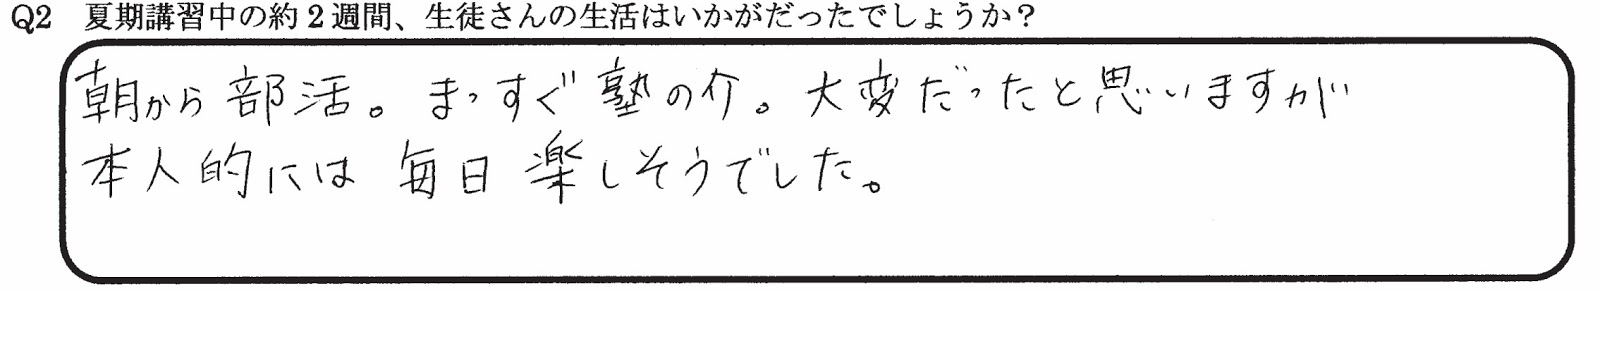 Q2 夏期講習中の約2週間、生徒さんの生活はいかがだったでしょうか?
朝から部活。まっすぐ塾の介。大変だったと思いますが
本人的には 毎日 楽しそうでした。